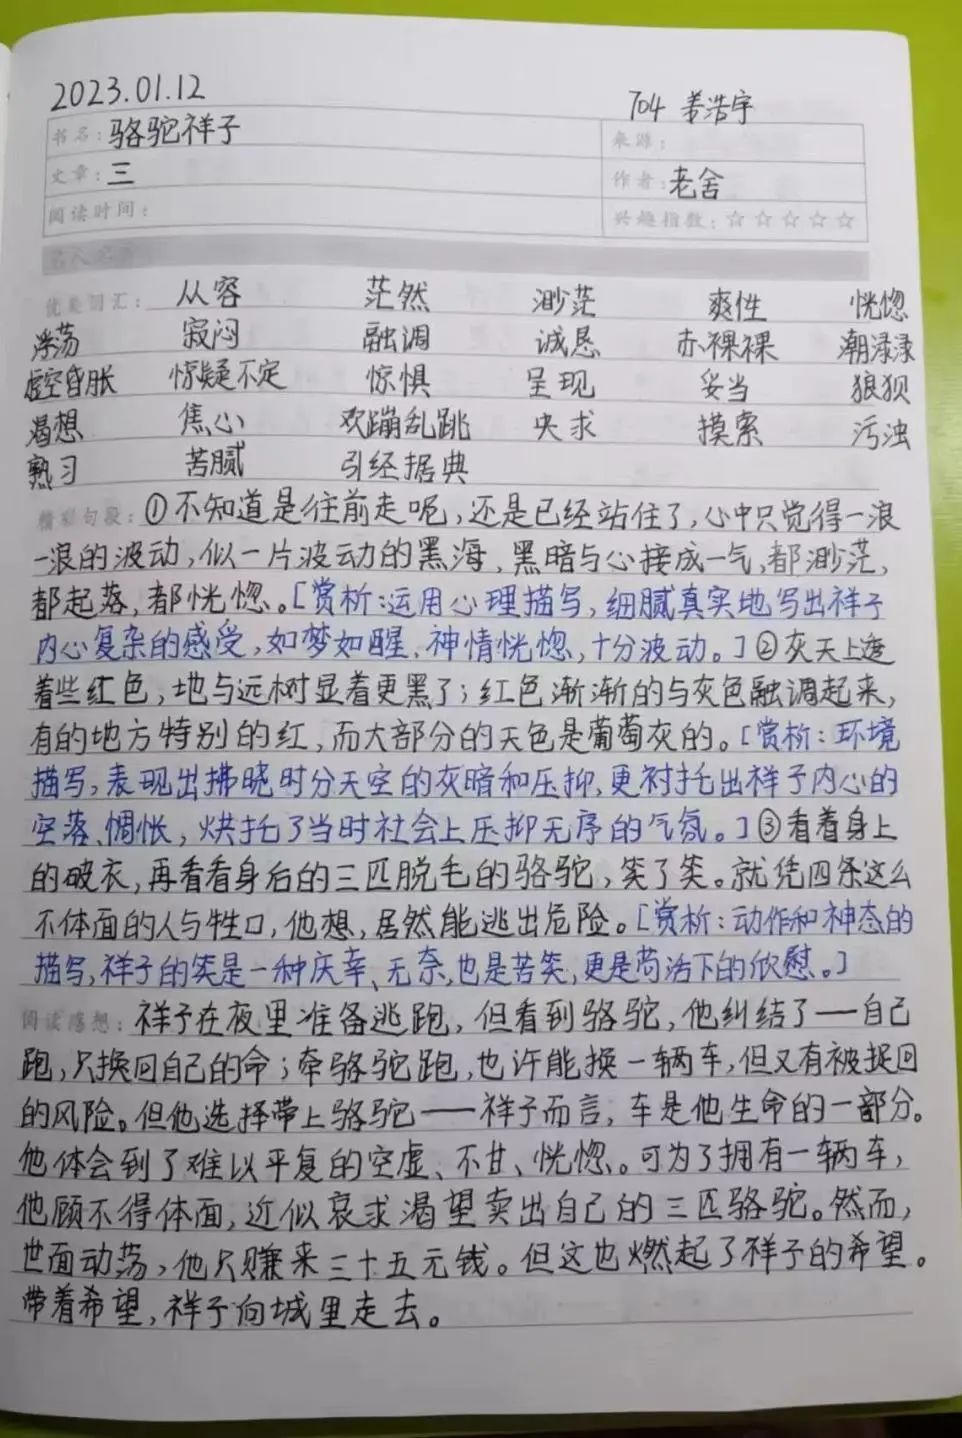 2023.01.12
704 姜浩宇
书名：骆驼祥子 来源：
文章：三 作者：老舍
阅读时间： 兴趣指数：☆☆☆☆☆
优美词汇： 从容 茫然 渺茫 爽性 恍惚
浮荡 寂闷 融调 诚恳 赤裸裸 潮渌渌
虚空昏胀 惊疑不定 惊惧 呈现 妥当 狼狈
渴想 焦心 欢蹦乱跳 央求 摸索 污浊
熟习 苦腻 引经据典
精彩句段：①不知道是往前走呢，还是已经站住了，心中只觉得一浪
一浪的波动，似一片波动的黑海，黑暗与心接成一气，都渺茫，
都起落，都恍惚。[赏析：运用心理描写，细腻真实地写出祥子
内心复杂的感受，如梦如醒，神情恍惚，十分波动。]②灰天上透
着些红色，地与远树显着更黑了；红色渐渐的与灰色融调起来，
有的地方特别的红，而大部分的天色是葡萄灰的。[赏析：环境
描写，表现出拂晓时分天空的灰暗和压抑，更衬托出祥子内心的
空落、惆怅，烘托了当时社会上压抑无序的气氛。]③看着身上
的破衣，再看看身后的三匹脱毛的骆驼，笑了笑。就凭四条这么
不体面的人与牲口，他想，居然能逃出危险。[赏析：动作和神态的
描写，祥子的笑是一种庆幸、无奈，也是苦笑，更是苟活下的欣慰。]
阅读感想：祥子在夜里准备逃跑，但看到骆驼，他纠结了——自己
跑，只换回自己的命；牵骆驼跑，也许能换一辆车，但又有被捉回
的风险。但他选择带上骆驼——祥子而言，车是他生命的一部分。
他体会到了难以平复的空虚、不甘、恍惚。可为了拥有一辆车，
他顾不得体面，近似哀求渴望卖出自己的三匹骆驼。然而，
世面动荡，他只赚来三十五元钱。但这也燃起了祥子的希望。
带着希望，祥子向城里走去。